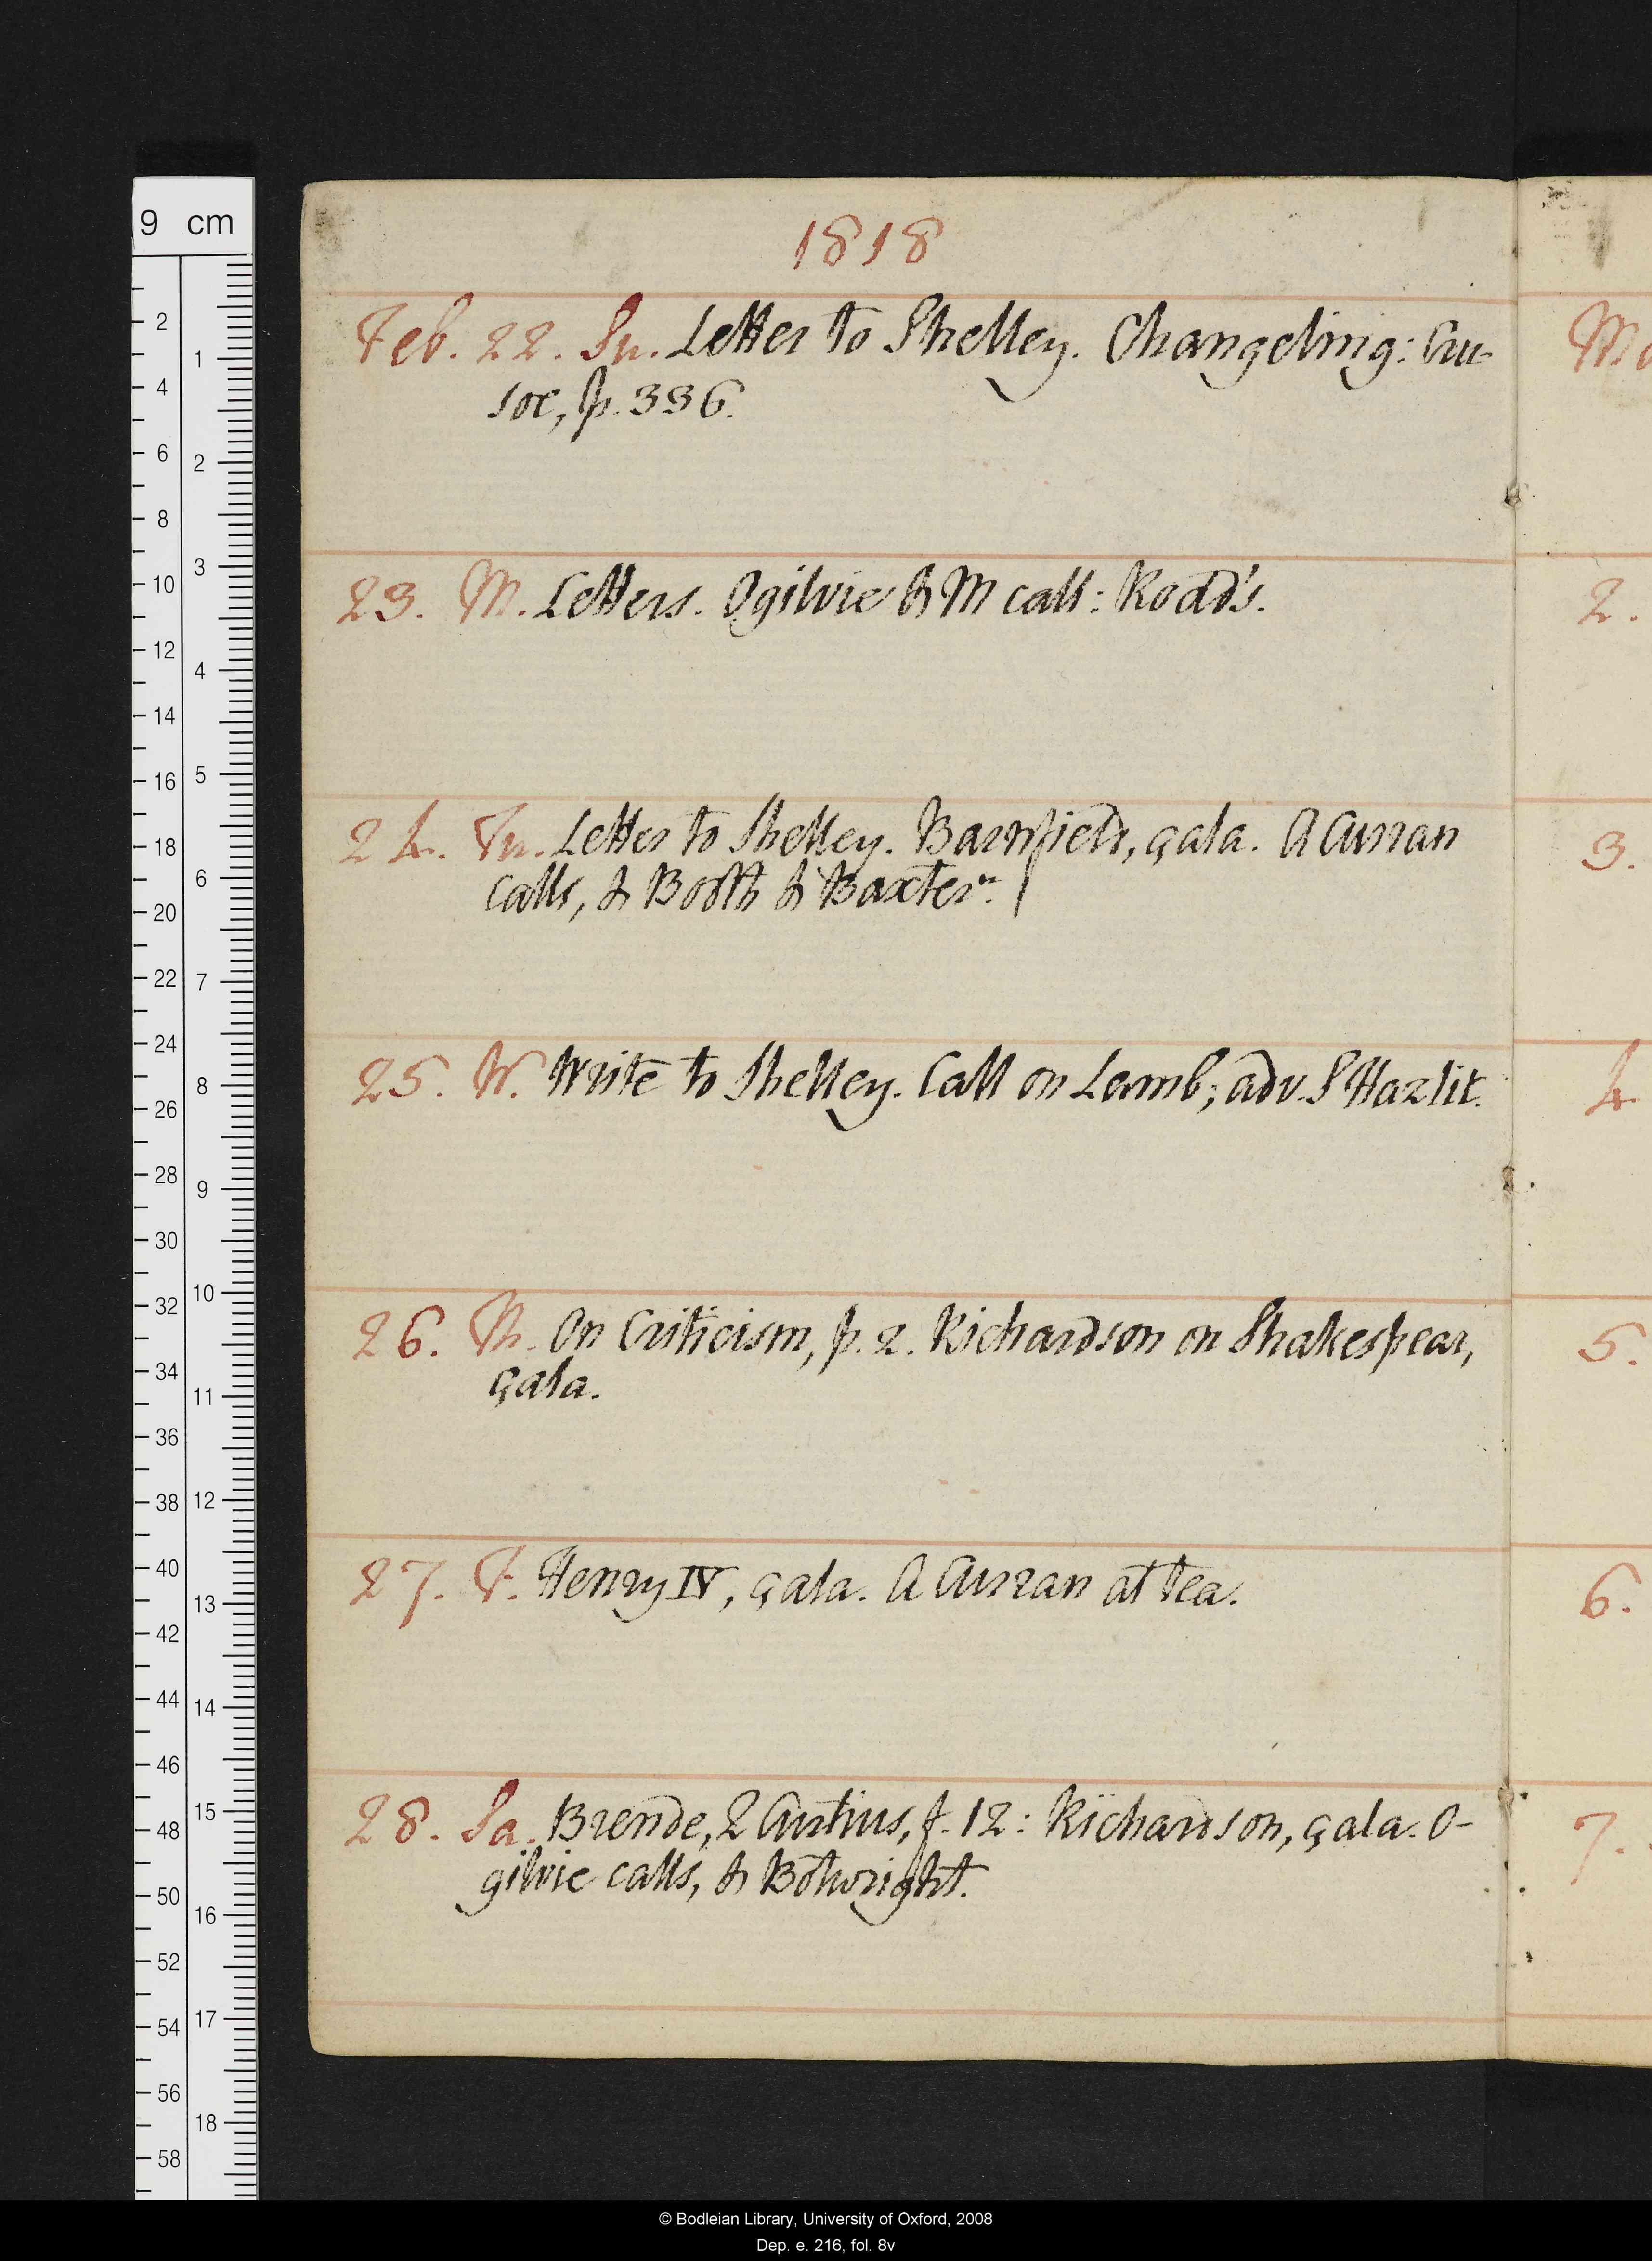 1818
Feb. 22. Su. Letter to Shelley. Changeling: Cru-
soe, p. 336.
23. M. Letters. Ogilvie & M call: Rodd's.
24. Tu. Letter to Shelley. Barnfield, çala. A Curran
calls, & Booth & Baxter.
25. W. Write to Shelley. Call on Lamb; adv. S Hazlit.
26. Th. On Criticism, p. 2. Richardson on Shakespear,
çala.
27. F. Henry IV, çala. A Curran at tea.
28. Sa. Brende, Q Curtius, f. 12: Richardson, çala. O-
gilvie calls, & Botwright.
Mo
2.
3.
4
5.
6.
7.
9 cm
2
4
6
8
10
12
14
16
18
20
22
24
26
28
30
32
34
36
38
40
42
44
46
48
50
52
54
56
58
1
2
3
4
5
6
7
8
9
10
11
12
13
14
15
16
17
18
© Bodleian Library, University of Oxford, 2008
Dep. e. 216, fol. 8v